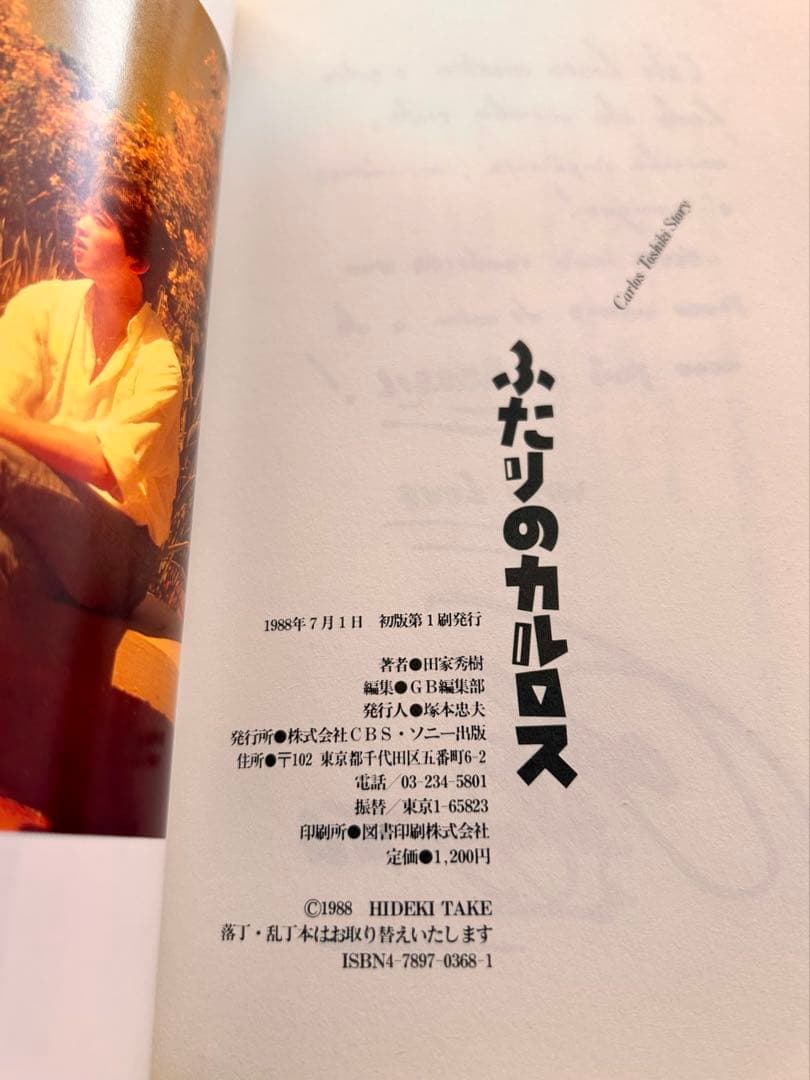 Carlos Toshiki Story
ふたりのカルロス
1988年7月1日 初版第1刷発行
著者●田家秀樹
編集●GB編集部
発行人●塚本忠夫
発行所●株式会社CBS・ソニー出版
住所●〒102 東京都千代田区五番町6-2
電話/03-234-5801
振替/東京1-65823
印刷所●図書印刷株式会社
定価●1,200円
©1988 HIDEKI TAKE
落丁・乱丁本はお取り替えいたします
ISBN4-7897-0368-1